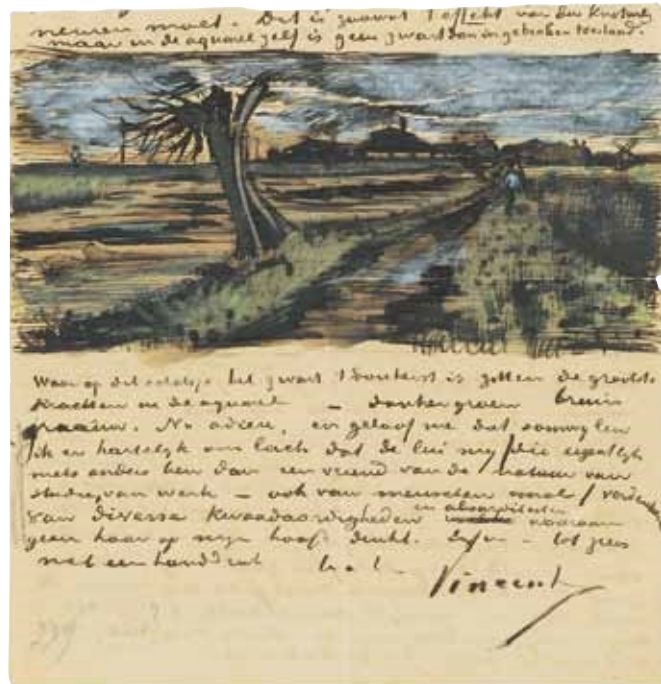 neuren moet. Dit is zoowat 't effekt van den Knotwilg
maar in de aquarel zelf is geen zwart dan in gebroken toestand.
Waar op dit schetsje het zwart 't donkerst is zitten de grootste
krachten in de aquarel – donkergroen bruin
graauw. Nu adieu, en geloof me dat somwijlen
ik er hartelijk om lach dat de lui mij (die eigentlijk
niets anders ben dan een vriend van de natuur van
studie, van werk – ook van menschen vooral) verdenken
van diverse kwaadaardigheden en absurditeiten waaraan
geen haar op mijn hoofd denkt. Enfin – tot ziens
met een handdruk
Vincent